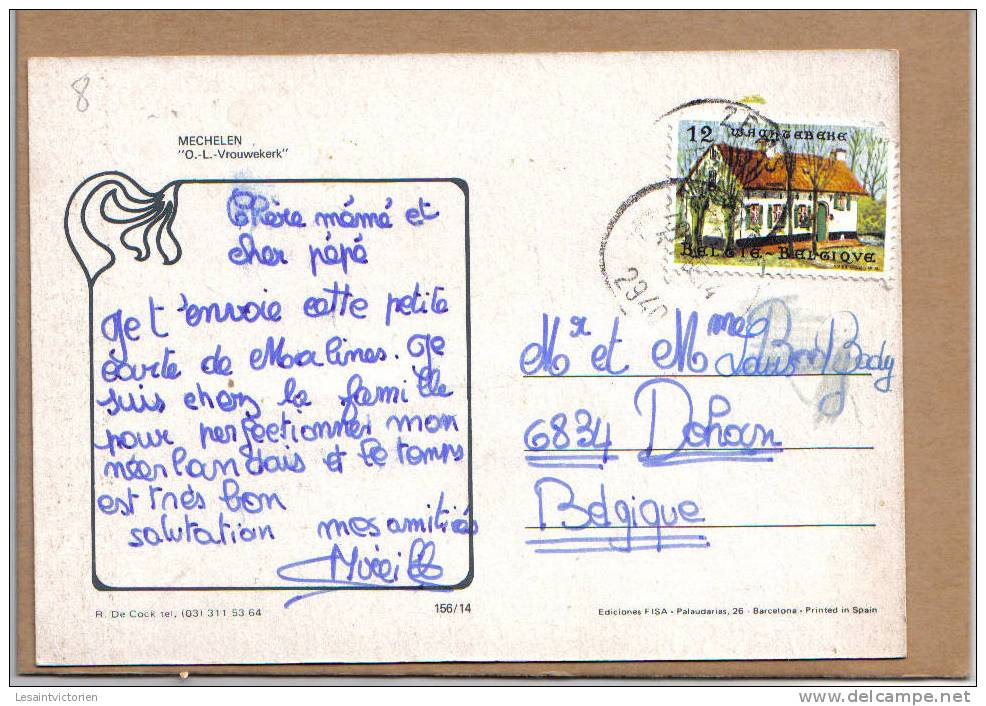 8
MECHELEN
"O.-L.-Vrouwekerk"
Chère mémé et
cher pépé
Je t'envoie cette petite
carte de Malines. Je
suis chez la famille
pour perfectionner mon
néerlandais et le temps
est très bon
salutation mes amitiés
Mireille
R. De Cock tel. (03) 311 53 64
156/14
12 WACHTEBEKE
BELGIË-BELGIQUE
2940
Mr et Mme Louis Body
6834 Dohan
Belgique
Ediciones FISA - Palaudarias, 26 - Barcelona - Printed in Spain
Lesaintvictorien
delcampe.net